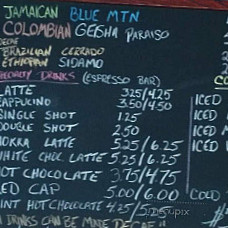 JAMAICAN BLUE MTN
COLOMBIAN GEISHA PARAISO
DECAF
BRAZILIAN CERRADO
ETHIOPIAN SIDAMO
SPECIALTY DRINKS (ESPRESSO BAR)
LATTE 325/425
CAPPUCINO 350/450
SINGLE SHOT 125
DOUBLE SHOT 250
MOKKA LATTE 525/6.25
WHITE CHOC. LATTE 525/6.25
HOT CHOCOLATE 375/475
RED CAP 5.00/6.00
MINT HOT CHOCOLATE 4.25/
DRINKS CAN BE MADE DECAF!!
ICED
ICED
ICED
ICED
COLD